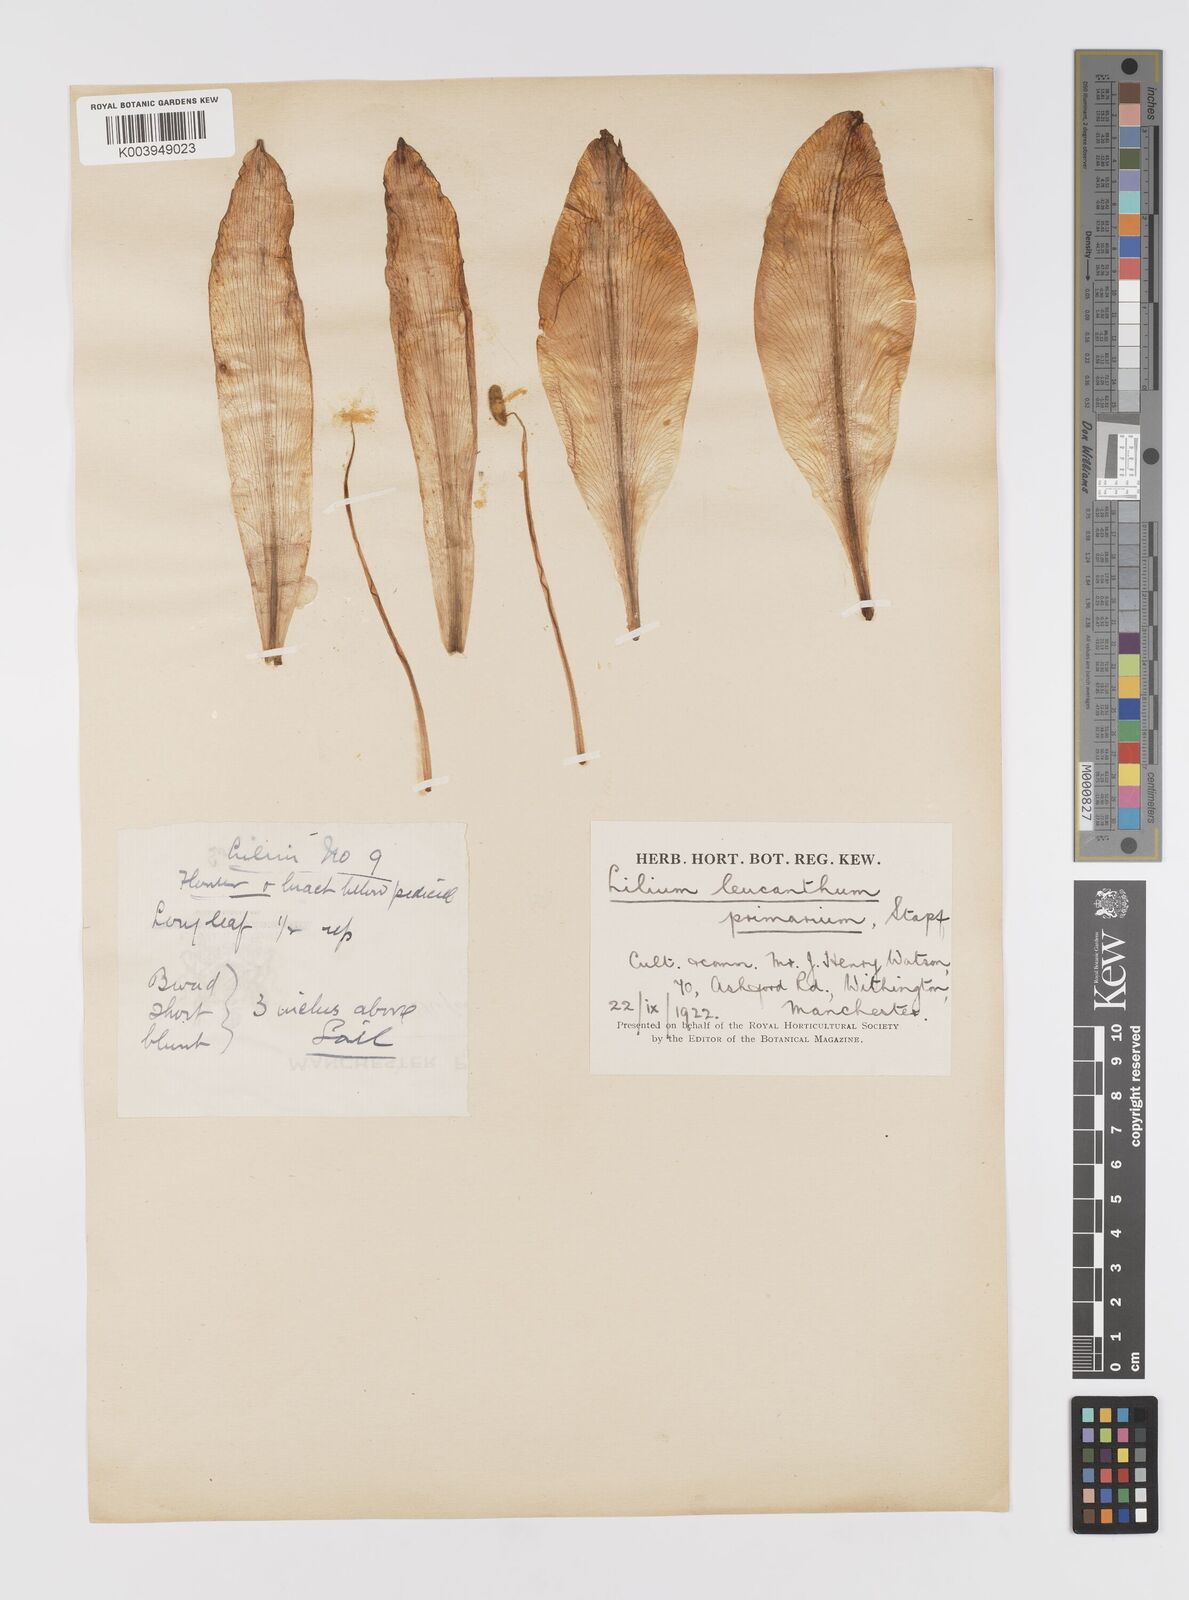 ROYAL BOTANIC GARDENS KEW
K003949023
Lilium No 9
Flower & bract below pedicel
Long leaf ½ up
Broad
Short
blunt
3 inches above
Soil
MANCHESTER
HERB. HORT. BOT. REG. KEW.
Lilium leucanthum
primarium, Stapf
Cult. & comm. Mr. J. Henry Watson,
70, Ashford Rd., Withington,
22/ix/1922. Manchester.
Presented on behalf of the ROYAL HORTICULTURAL SOCIETY
by the EDITOR of the BOTANICAL MAGAZINE.
inches
Density
Don Williams
M000827
centimeters
Royal Botanic Gardens
Kew
copyright reserved
0 1 2 3 4 5 6 7 8 9 10
cm